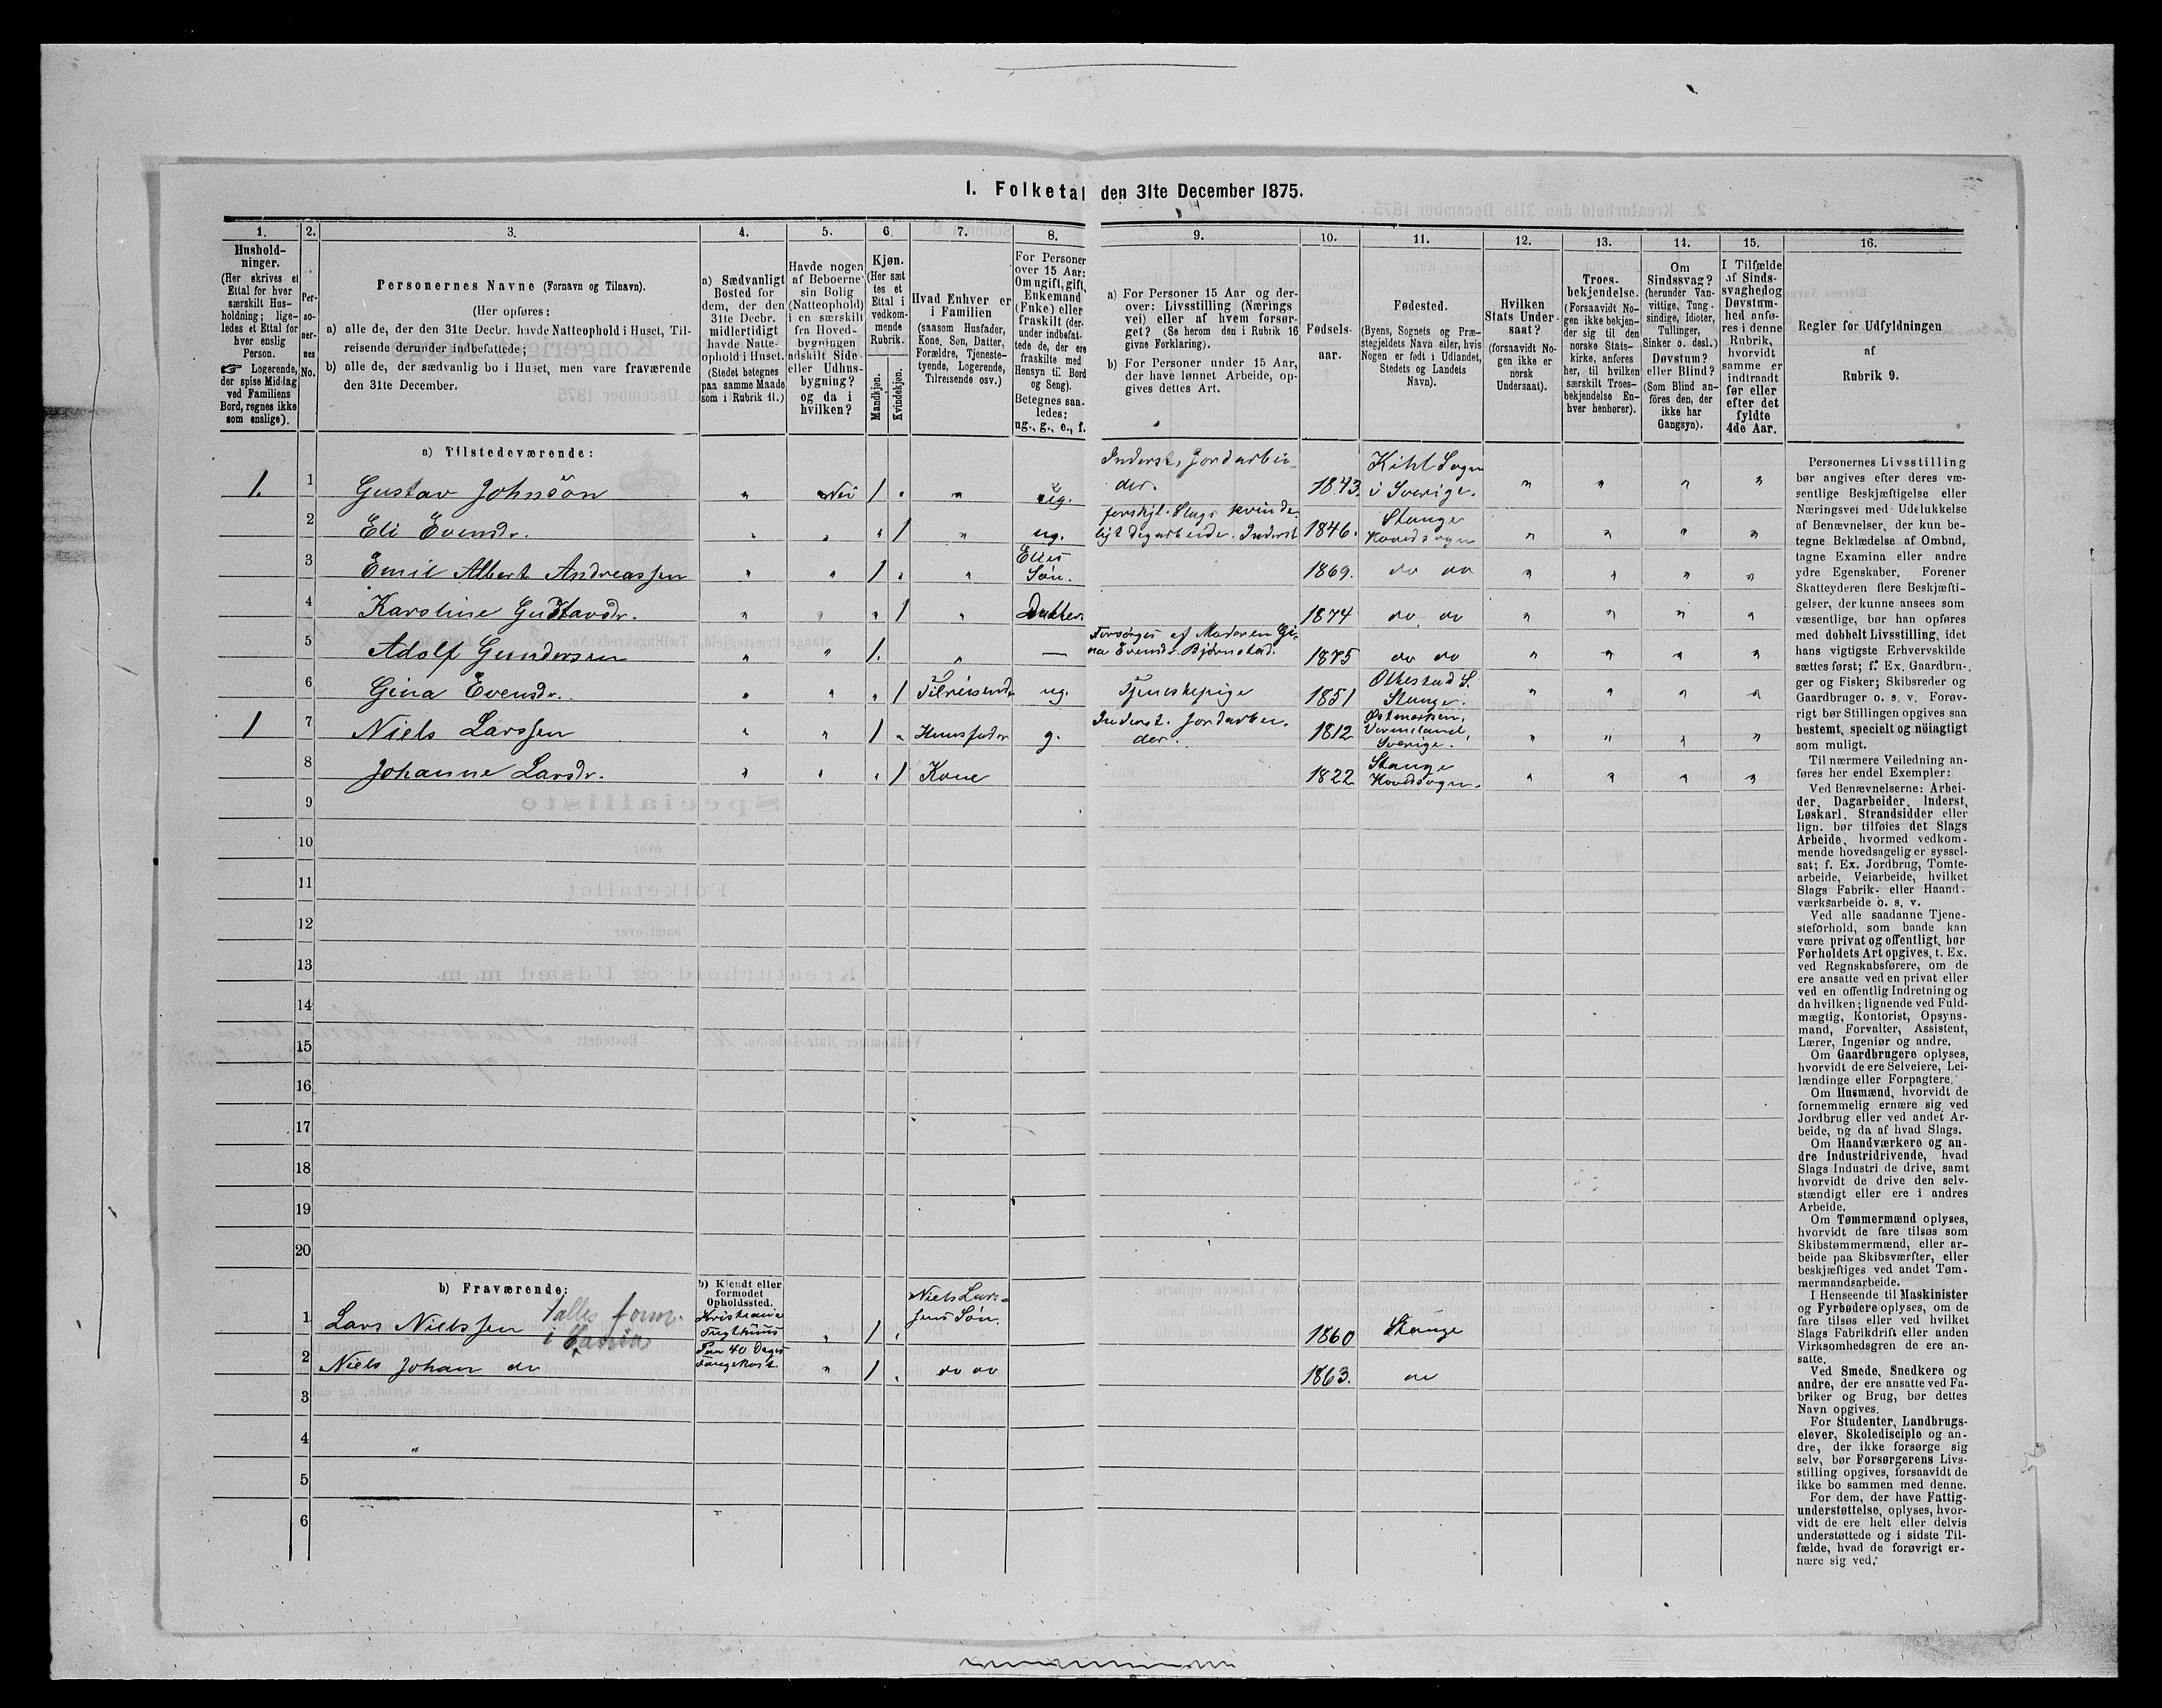 I. Folketal den 31te December 1875.
1.
2.
3.
4.
5.
6.
7.
8.
9.
10.
11.
12.
13.
14.
15.
16.
Hushold-
ninger.
(Her skrives et
Ettal for hver
særskilt Hus-
holdning; lige-
ledes et Ettal for
hver enslig
Person.
☞ Logerende,
der spise Middag
ved Familiens
Bord, regnes ikke
som enslige).
Per-
so-
ner-
nes
No.
Personernes Navne (Fornavn og Tilnavn).
(Her opføres:
a) alle de, der den 31te Decbr. havde Natteophold i Huset, Til-
reisende derunder indbefattede;
b) alle de, der sædvanlig bo i Huset, men vare fraværende
den 31te December.
a) Sædvanligt
Bosted for
dem, der den
31te Decbr.
midlertidigt
havde Natte-
ophold i Huset.
(Stedet betegnes
paa samme Maade
som i Rubrik 11.)
Havde nogen
af Beboerne
sin Bolig
(Natteophold)
i en særskilt
fra Hoved-
bygningen
adskilt Side-
eller Udhus-
bygning?
og da i
hvilken?
Kjøn.
(Her sæt
tes et
Ettal i
vedkom-
mende
Rubrik.
Mandkjøn.
Kvindekjøn.
Hvad Enhver er
i Familien
(saasom Husfader,
Kone, Søn, Datter,
Forældre, Tjeneste-
tyende, Logerende,
Tilreisende osv.)
For Personer
over 15 Aar:
Om ugift, gift,
Enkemand
(Enke) eller
fraskilt (der-
under indbefat-
tede de, der ere
fraskilte med
Hensyn til Bord
og Seng).
Betegnes saa-
ledes:
ug., g., e., f.
a) For Personer 15 Aar og der-
over: Livsstilling (Nærings
vei) eller af hvem forsør-
get? (Se herom den i Rubrik 16
givne Forklaring).
b) For Personer under 15 Aar,
der have lønnet Arbeide, op-
gives dettes Art.
Fødsels-
aar.
Fødested.
(Byens, Sognets og Præ-
stegjeldets Navn eller, hvis
Nogen er født i Udlandet,
Stedets og Landets
Navn).
Hvilken
Stats Under-
saat?
(forsaavidt No-
gen ikke er
norsk
Undersaat).
Troes-
bekjendelse.
(Forsaavidt No-
gen ikke bekjen-
der sig til den
norske Stats-
kirke, anføres
her, til hvilken
særskilt Troes-
bekjendelse En-
hver henhører).
Om
Sindssvag?
(herunder Van-
vittige, Tung-
sindige, Idioter,
Tullinger,
Sinker o. desl.)
Døvstum?
eller Blind?
(Som Blind an-
føres den, der
ikke har
Gangsyn).
I Tilfælde
af Sinds-
svaghed og
Døvstum-
hed anfø-
res i denne
Rubrik,
hvorvidt
samme er
indtraadt
før eller
efter det
fyldte
4de Aar.
Regler for Udfyldningen
af
Rubrik 9.
a) Tilstedeværende:
1. 1 Gustav Johnsön " Nei 1 " " ug. Inderst, Jordarbei-
der. 1843. Kihl Sogn
i Sverige. " " " "
2 Eli Evensdr. " " " 1 " ug. forskjl. Slags kvinde-
ligt dagarbeide. Inderst 1846. Stange
Hovedsogn " " " "
3 Emil Albert Andreassen " " 1 " " Elies
Søn. 1869. do do " " " "
4 Karoline Gustavsdr. " " " 1 " Datter 1874 do do " " " "
5 Adolf Gundersen " " 1. " — Forsørges af Moderen Gi-
na Evensdr. Björnstad. 1875 do do " " " "
6 Gina Evensdr. " " " 1 Tilreisende ug. Tjenestepige 1851 Ottestad S.
Stange. " " " "
1 7 Niels Larssen " " 1 " Huusfader g. Inderst. Jordarbei-
der. 1812 Östmarken,
Vermeland,
Sverige. " " " "
8 Johanne Larsdr. " " " 1 Kone 1822 Stange
Hovedsogn. " " " "
9
10
11
12
13
14
15
16
17
18
19
20
b) Fraværende:
b) Kjendt eller
formodet
Opholdssted.
1 Lars Nielssen Kristiania
Tugthuus " 1 " Niels Lars-
sens Søn. 1860 Stange
2 Niels Johan do Paa 40 Dages
Fangekost. " 1 " do do 1863. do
3
4 "
5
6
Personernes Livsstilling
bør angives efter deres væ-
sentlige Beskjæftigelse eller
Næringsvei med Udelukkelse
af Benævnelser, der kun be-
tegne Beklædelse af Ombud,
tagne Examina eller andre
ydre Egenskaber. Forener
Skatteyderen flere Beskjæfti-
gelser, der kunne ansees som
væsentlige, bør han opføres
med dobbelt Livsstilling, idet
hans vigtigste Erhvervskilde
sættes først; f. Ex. Gaardbru-
ger og Fisker; Skibsreder og
Gaardbruger o. s. v. Forøv-
rigt bør Stillingen opgives saa
bestemt, specielt og nøiagtigt
som muligt.
Til nærmere Veiledning an-
føres her endel Exempler:
Ved Benævnelserne: Arbei-
der, Dagarbeider, Inderst,
Løskarl, Strandsidder eller
lign. bør tilføies det Slags
Arbeide, hvormed vedkom-
mende hovedsagelig er syssel-
sat; f. Ex. Jordbrug, Tomte-
arbeide, Veiarbeide, hvilket
Slags Fabrik- eller Haand-
værksarbeide o. s. v.
Ved alle saadanne Tjene-
steforhold, som baade kan
være privat og offentligt, bør
Forholdets Art opgives, t. Ex.
ved Regnskabsførere, om de
ere ansatte ved en privat eller
ved en offentlig Indretning og
da hvilken; lignende ved Fuld-
mægtig, Kontorist, Opsyns-
mand, Forvalter, Assistent,
Lærer, Ingeniør og andre.
Om Gaardbrugere oplyses,
hvorvidt de ere Selveiere, Lei-
lændinge eller Forpagtere.
Om Husmænd, hvorvidt de
fornemmelig ernære sig ved
Jordbrug eller ved andet Ar-
beide, og da af hvad Slags.
Om Haandværkere og an-
dre Industridrivende, hvad
Slags Industri de drive, samt
hvorvidt de drive den selv-
stændigt eller ere i andres
Arbeide.
Om Tømmermænd oplyses,
hvorvidt de fare tilsøs som
Skibstømmermænd, eller ar-
beide paa Skibsværfter, eller
beskjæftiges ved andet Tøm-
mermandsarbeide.
I Henseende til Maskinister
og Fyrbødere oplyses, om de
fare tilsøs eller ved hvilket
Slags Fabrikdrift eller anden
Virksomhedsgren de ere an-
satte.
Ved Smede, Snedkere og
andre, der ere ansatte ved Fa-
briker og Brug, bør dettes
Navn opgives.
For Studenter, Landbrugs-
elever, Skoledisciple og an-
dre, der ikke forsørge sig
selv, bør Forsørgerens Livs-
stilling opgives, forsaavidt de
ikke bo sammen med denne.
For dem, der have Fattig-
understøttelse, oplyses, hvor-
vidt de ere helt eller delvis
understøttede og i sidste Til-
fælde, hvad de forøvrigt er-
nære sig ved.